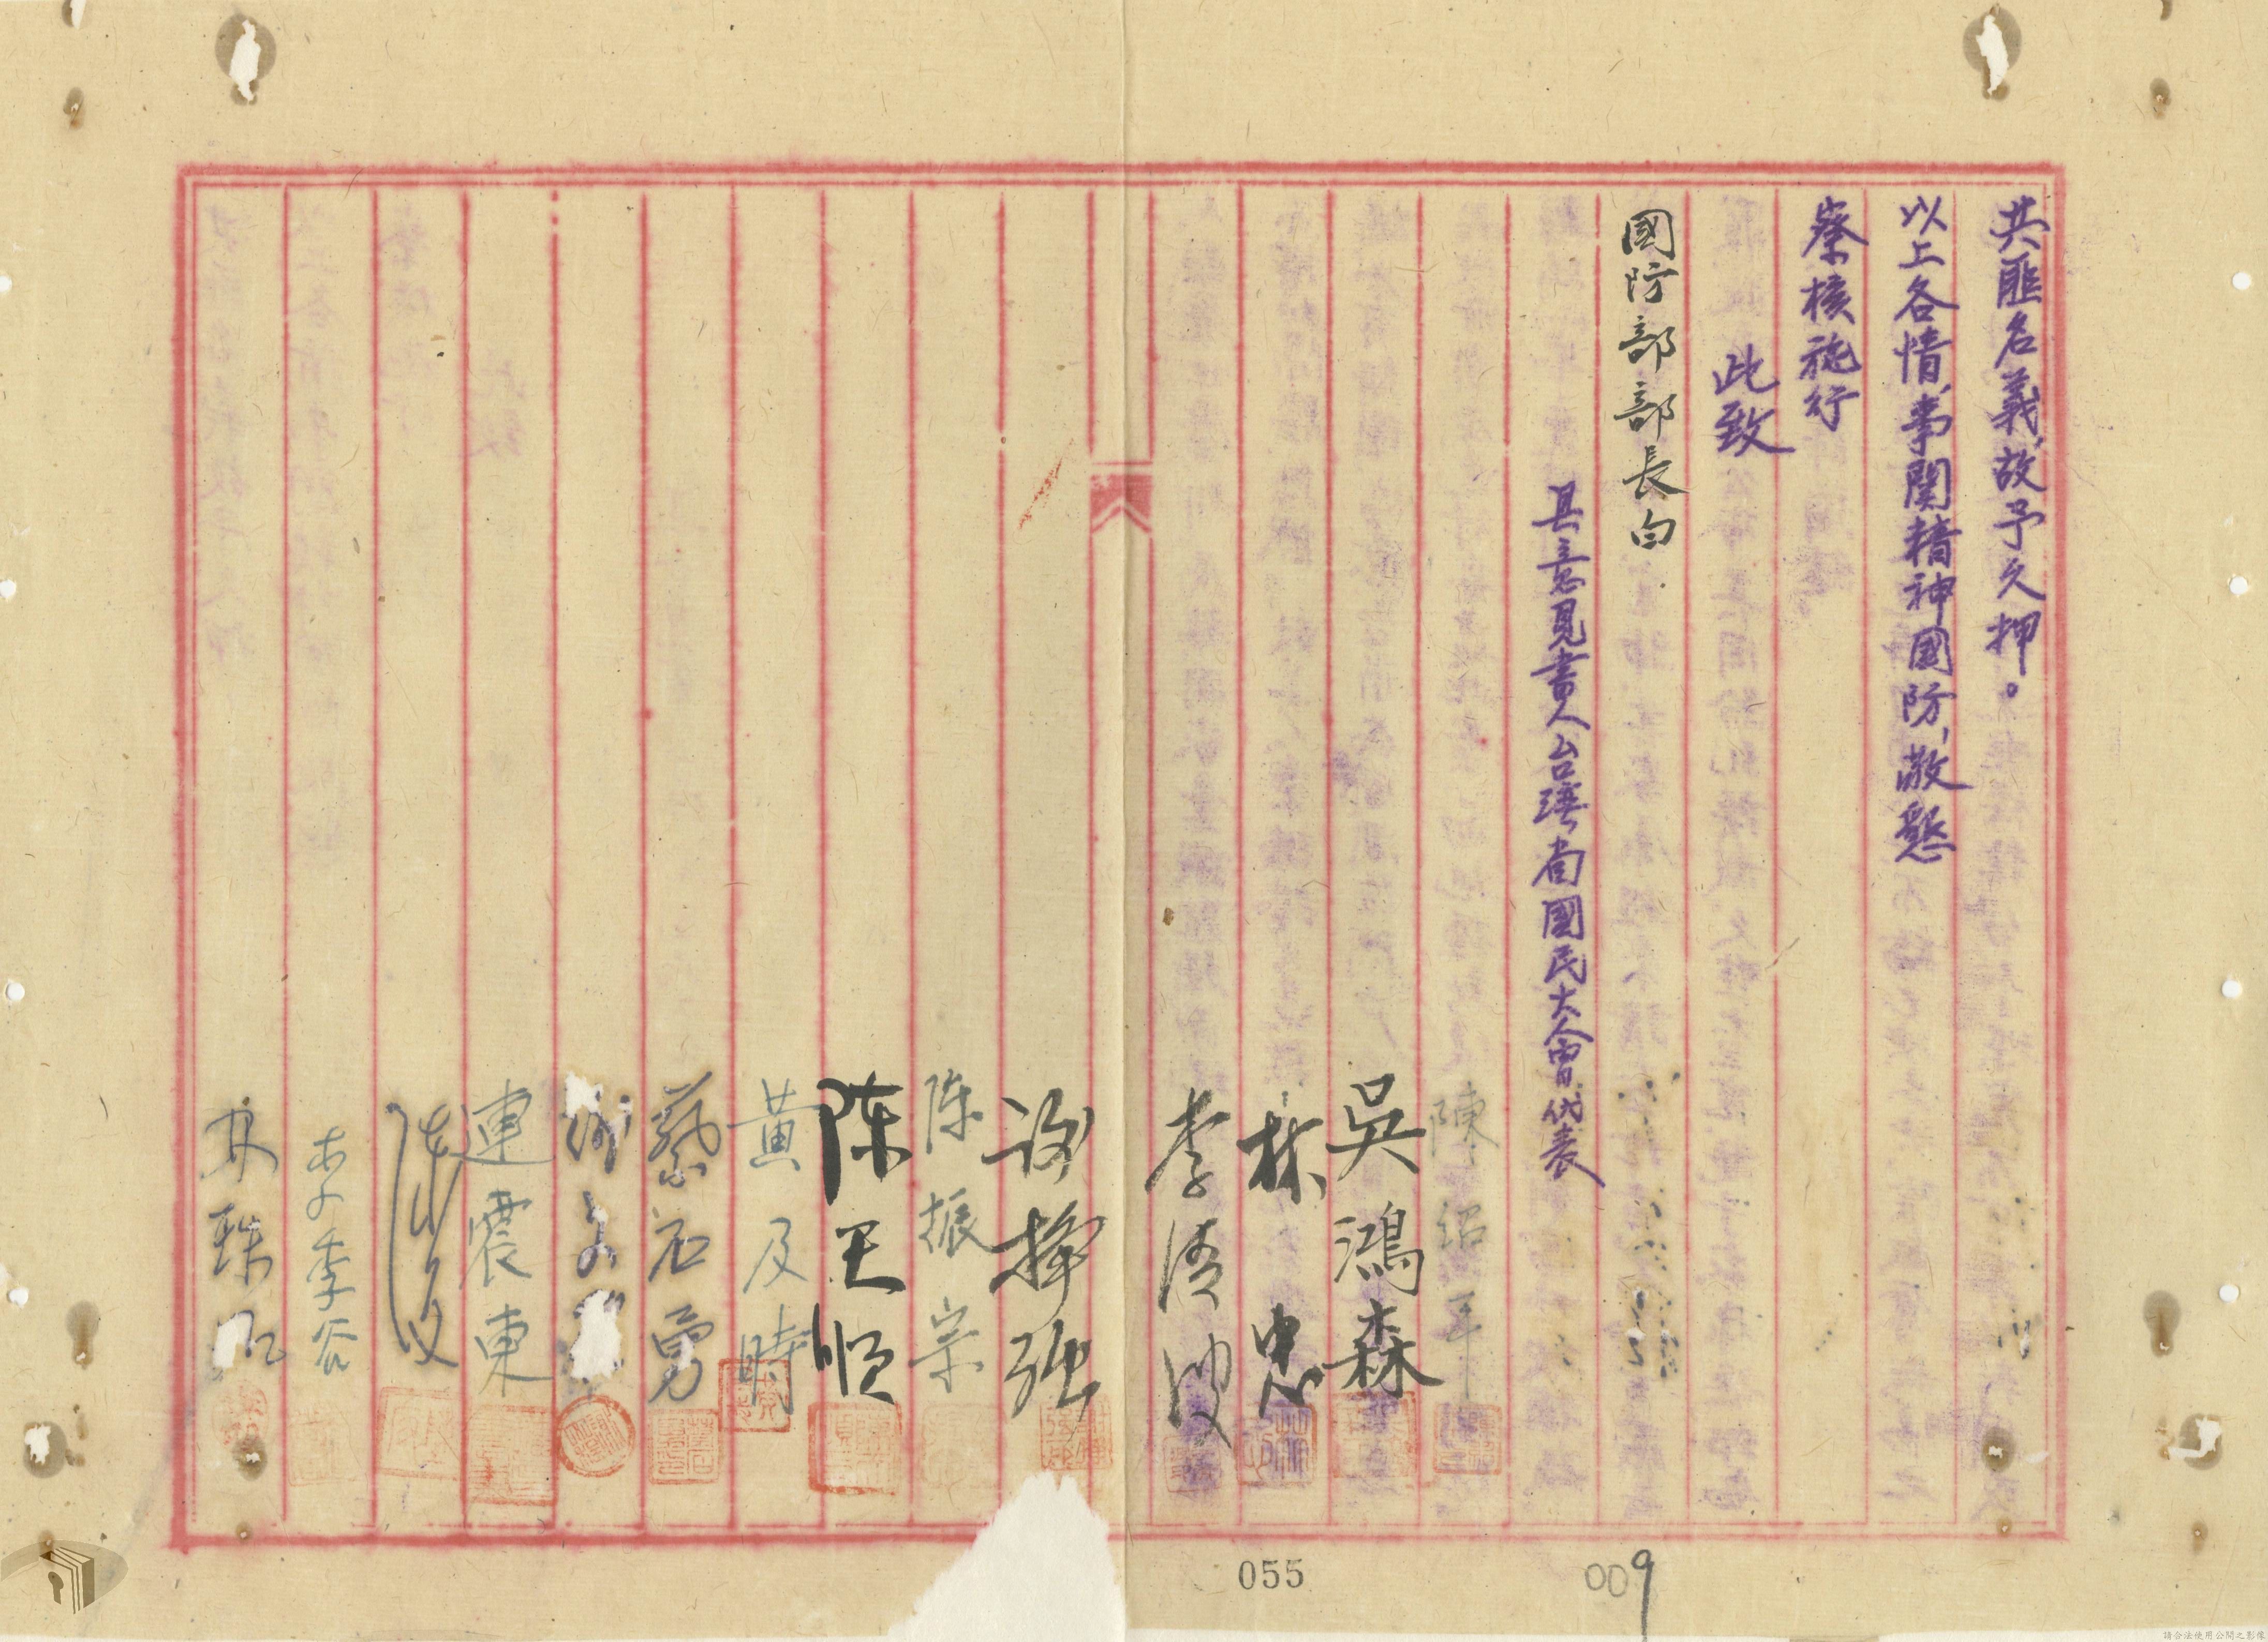 共匪名義，故予久押。
以上各情，事関精神國防，敬懇
察核施行
此致
國防部部長白
具意見書人台湾省國民大会曽代表
陳紹平
吳鴻森
林忠
李清波
謝掙強
陈振宗
陈天順
黃及時
蔡石勇
連震東
李季谷
林珠如
055
009
請合法使用公開之影像